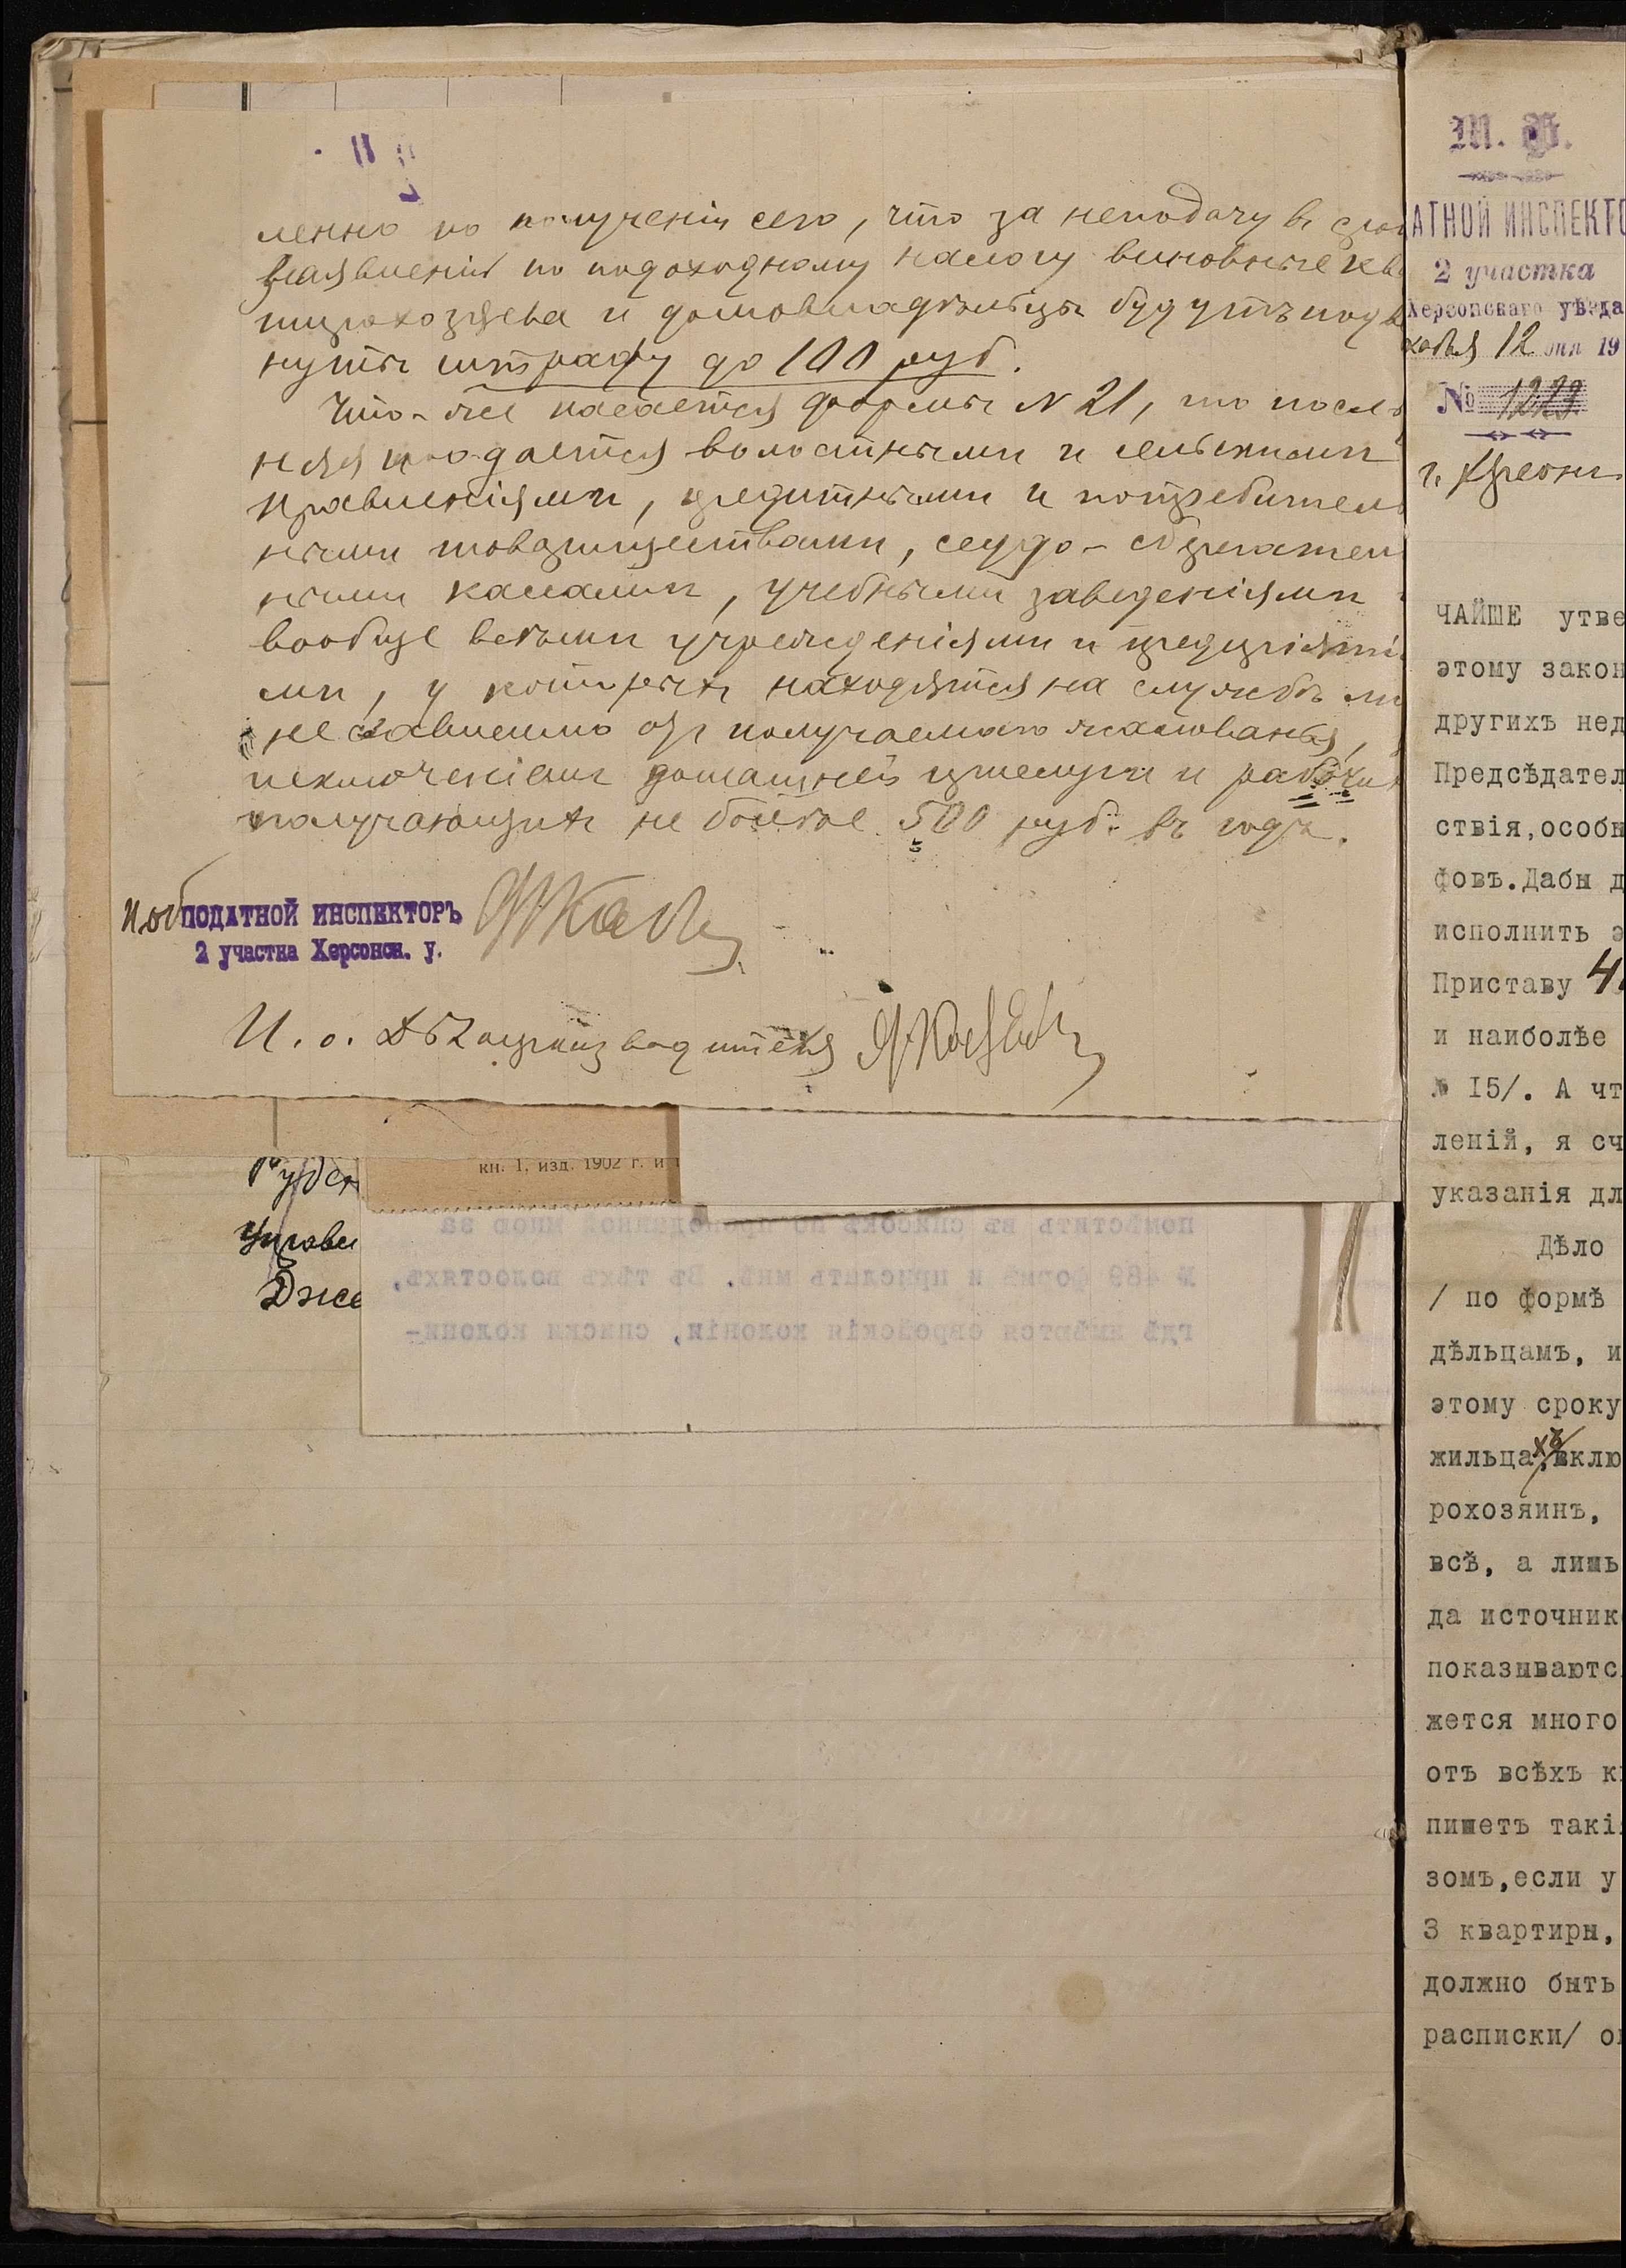 ленно по полученіи сего, что за неподачу въ срок
заявленія по подоходному налогу виновные ква
тирохозяева и домовладѣльцы будутъ подве
нуты штрафу до 100 руб.
Что-же касается формы № 21, то послѣд
няя подается волостными и сельскими
правленіями, кредитными и потребитель
ными товариществами, ссудо-сберегатель
ными кассами, учебными заведеніями
вообще всѣми учрежденіями и предпріяті
ми, у которыхъ находятся на службѣ ли
независимо отъ получаемаго жалованья,
исключеніемъ домашней прислуги и рабочих
получающихъ не болѣе 500 руб. въ годъ.
ПОДАТНОЙ ИНСПЕКТОРЪ
2 участка Херсонск. у.
И. о. Дѣлопроизводителя
кн. 1, изд. 1902 г. и
Управл
Дже
помѣстить въ списокъ по приложенной мною за
№ 489 формѣ и прислать мнѣ. Въ тѣхъ волостяхъ,
гдѣ имѣются еврейскія колоніи, списки колони-
М. Ф.
АТНОЙ ИНСПЕКТО
2 участка
Херсонскаго уѣзда
12 дня 19
№ 1229
г. Херсон
ЧАЙШЕ утве
этому закон
другихъ нед
Предсѣдател
ствія,особн
фовъ.Дабы д
исполнить э
Приставу 4
и наиболѣе
№ 15/. А чт
леній, я сч
указанія дл
Дѣло
/ по формѣ
дѣльцамъ, и
этому сроку
жильцахъ,вклю
рохозяинъ,
всѣ, а лишь
да источник
показываютс
жется много
отъ всѣхъ к
пишетъ такі
зомъ,если у
3 квартиры,
должно быть
расписки/ о